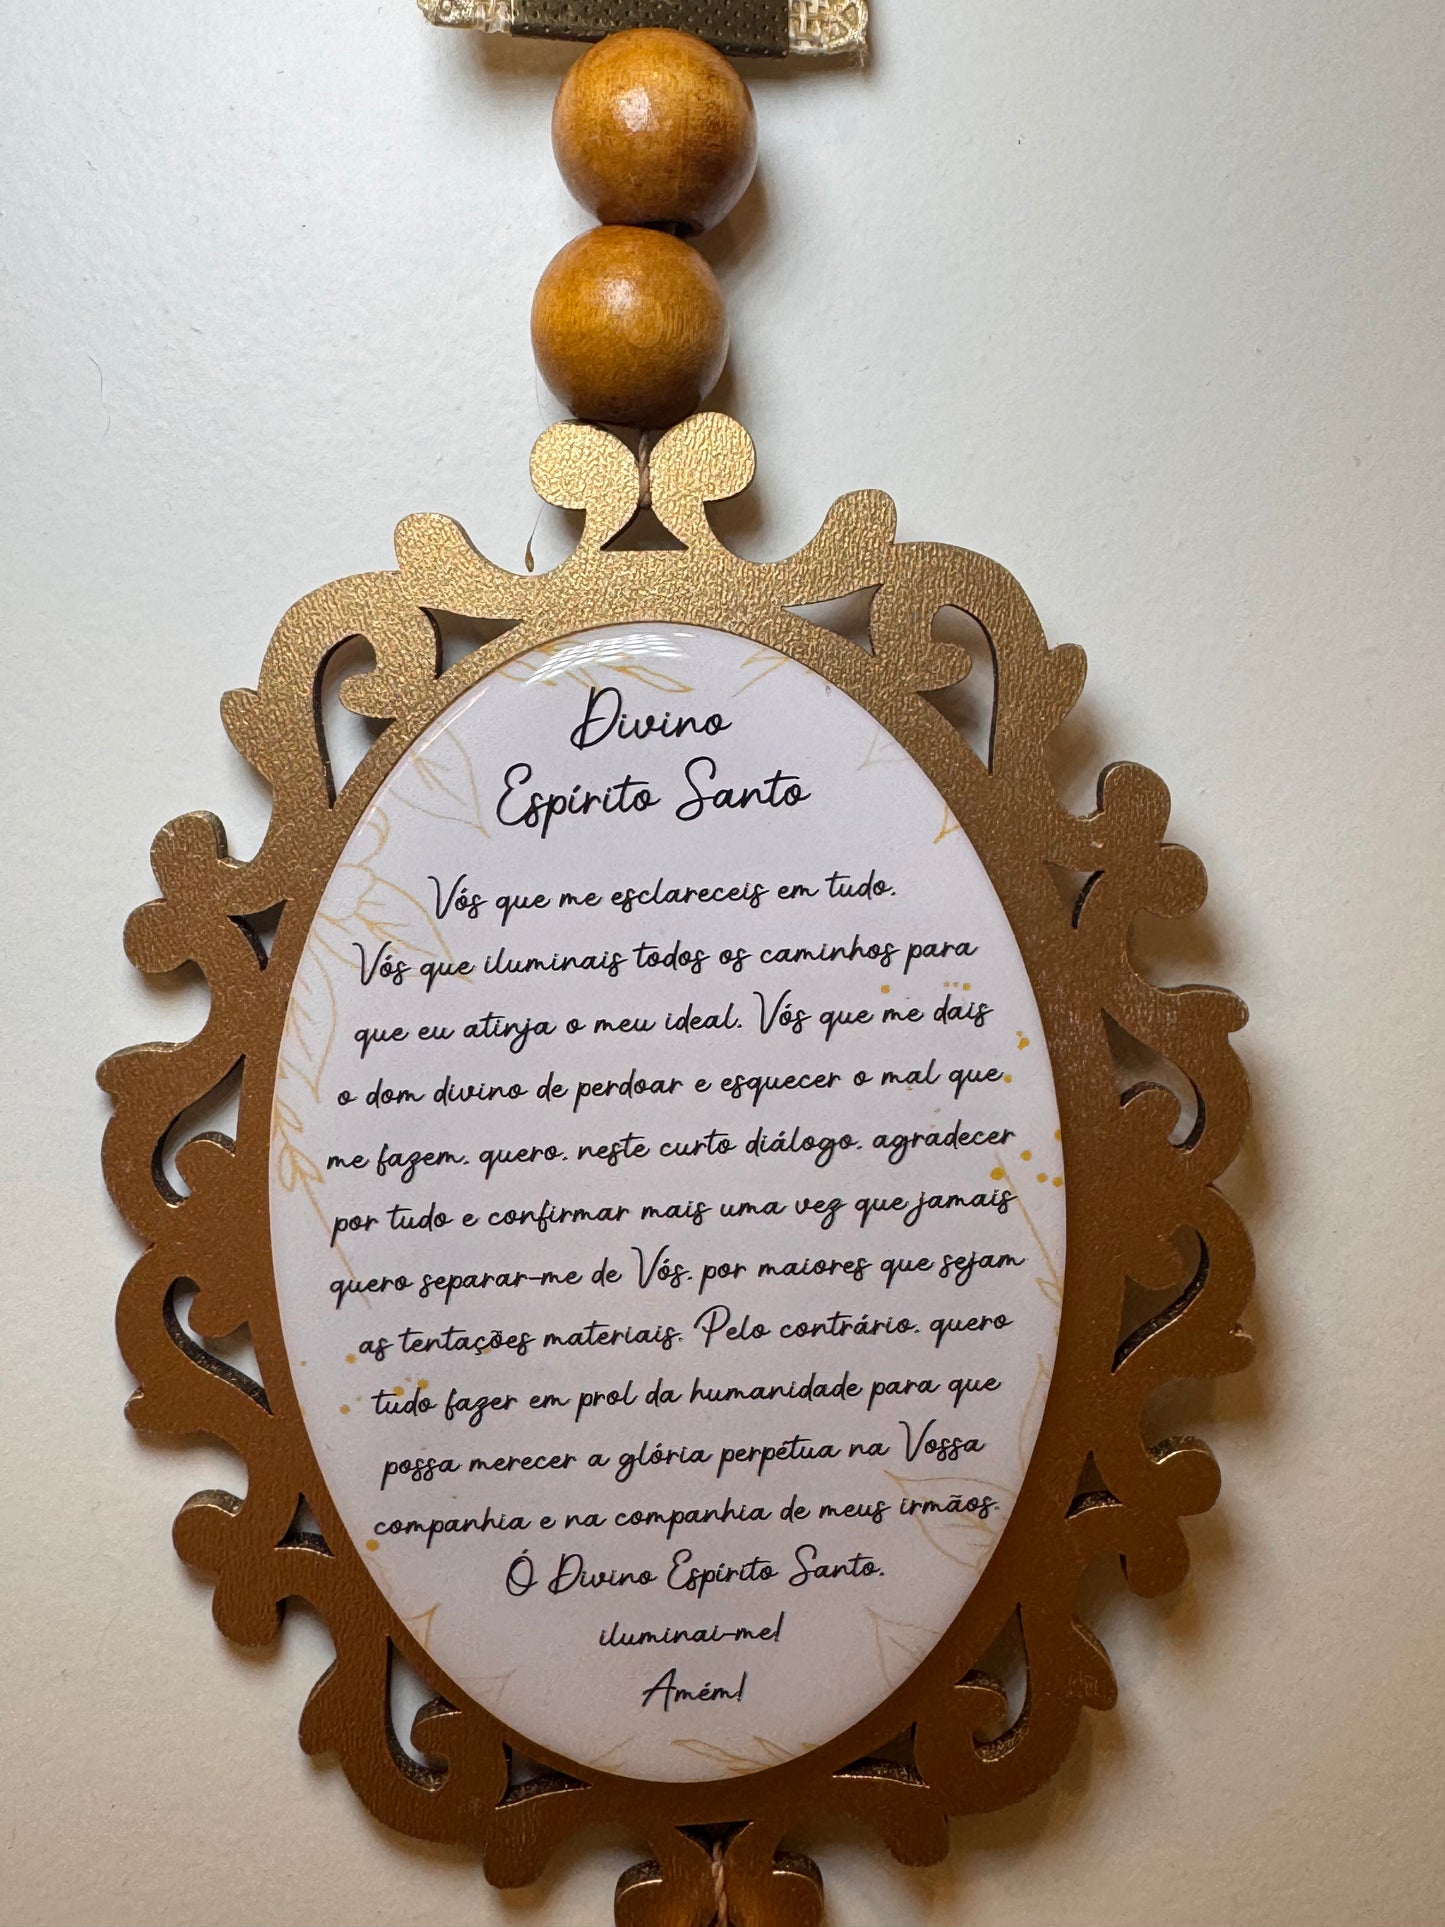 Divino
Espírito Santo
Vós que me esclareceis em tudo.
Vós que iluminais todos os caminhos para
que eu atinja o meu ideal. Vós que me dais
o dom divino de perdoar e esquecer o mal que
me fazem, quero, neste curto diálogo, agradecer
por tudo e confirmar mais uma vez que jamais
quero separar-me de Vós, por maiores que sejam
as tentações materiais. Pelo contrário, quero
tudo fazer em prol da humanidade para que
possa merecer a glória perpétua na Vossa
companhia e na companhia de meus irmãos.
Ó Divino Espírito Santo,
iluminai-me!
Amém!